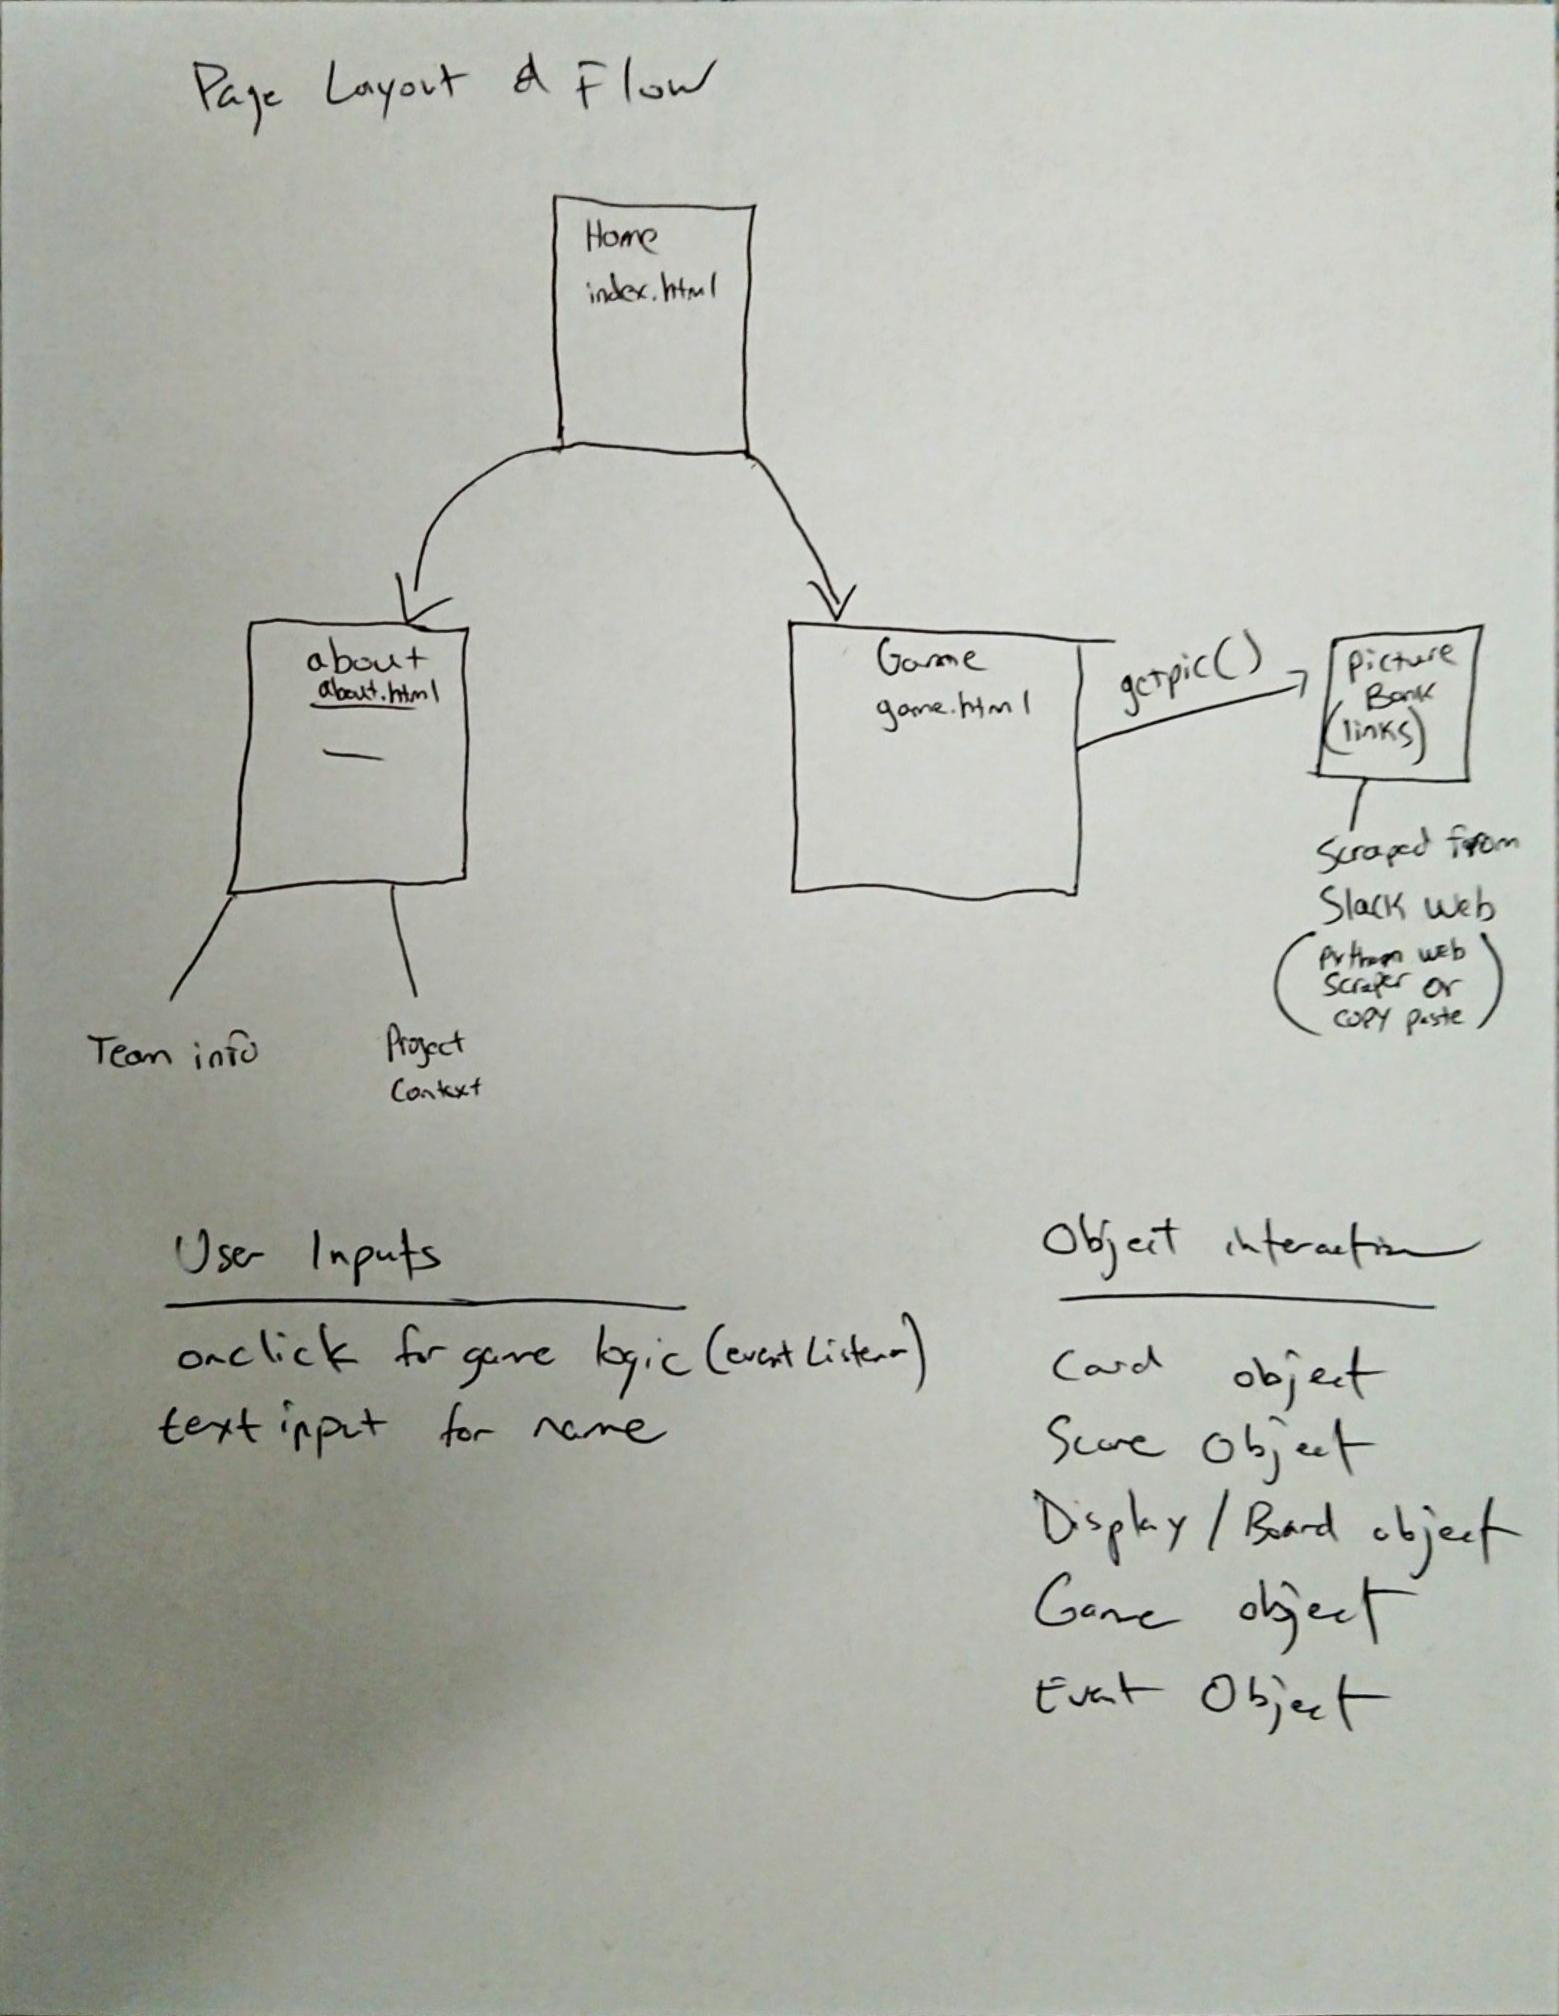 Page Layout & Flow
Home
index.html
about
about.html
Game
game.html
getpic()
Picture
Bank
(links)
Scraped from
Slack Web
(Python web
scraper or
copy paste)
Team info
Project
Context
User Inputs
onclick for game logic (event Listener)
text input for name
Object interaction
Card object
Score Object
Display / Board object
Game object
Event Object